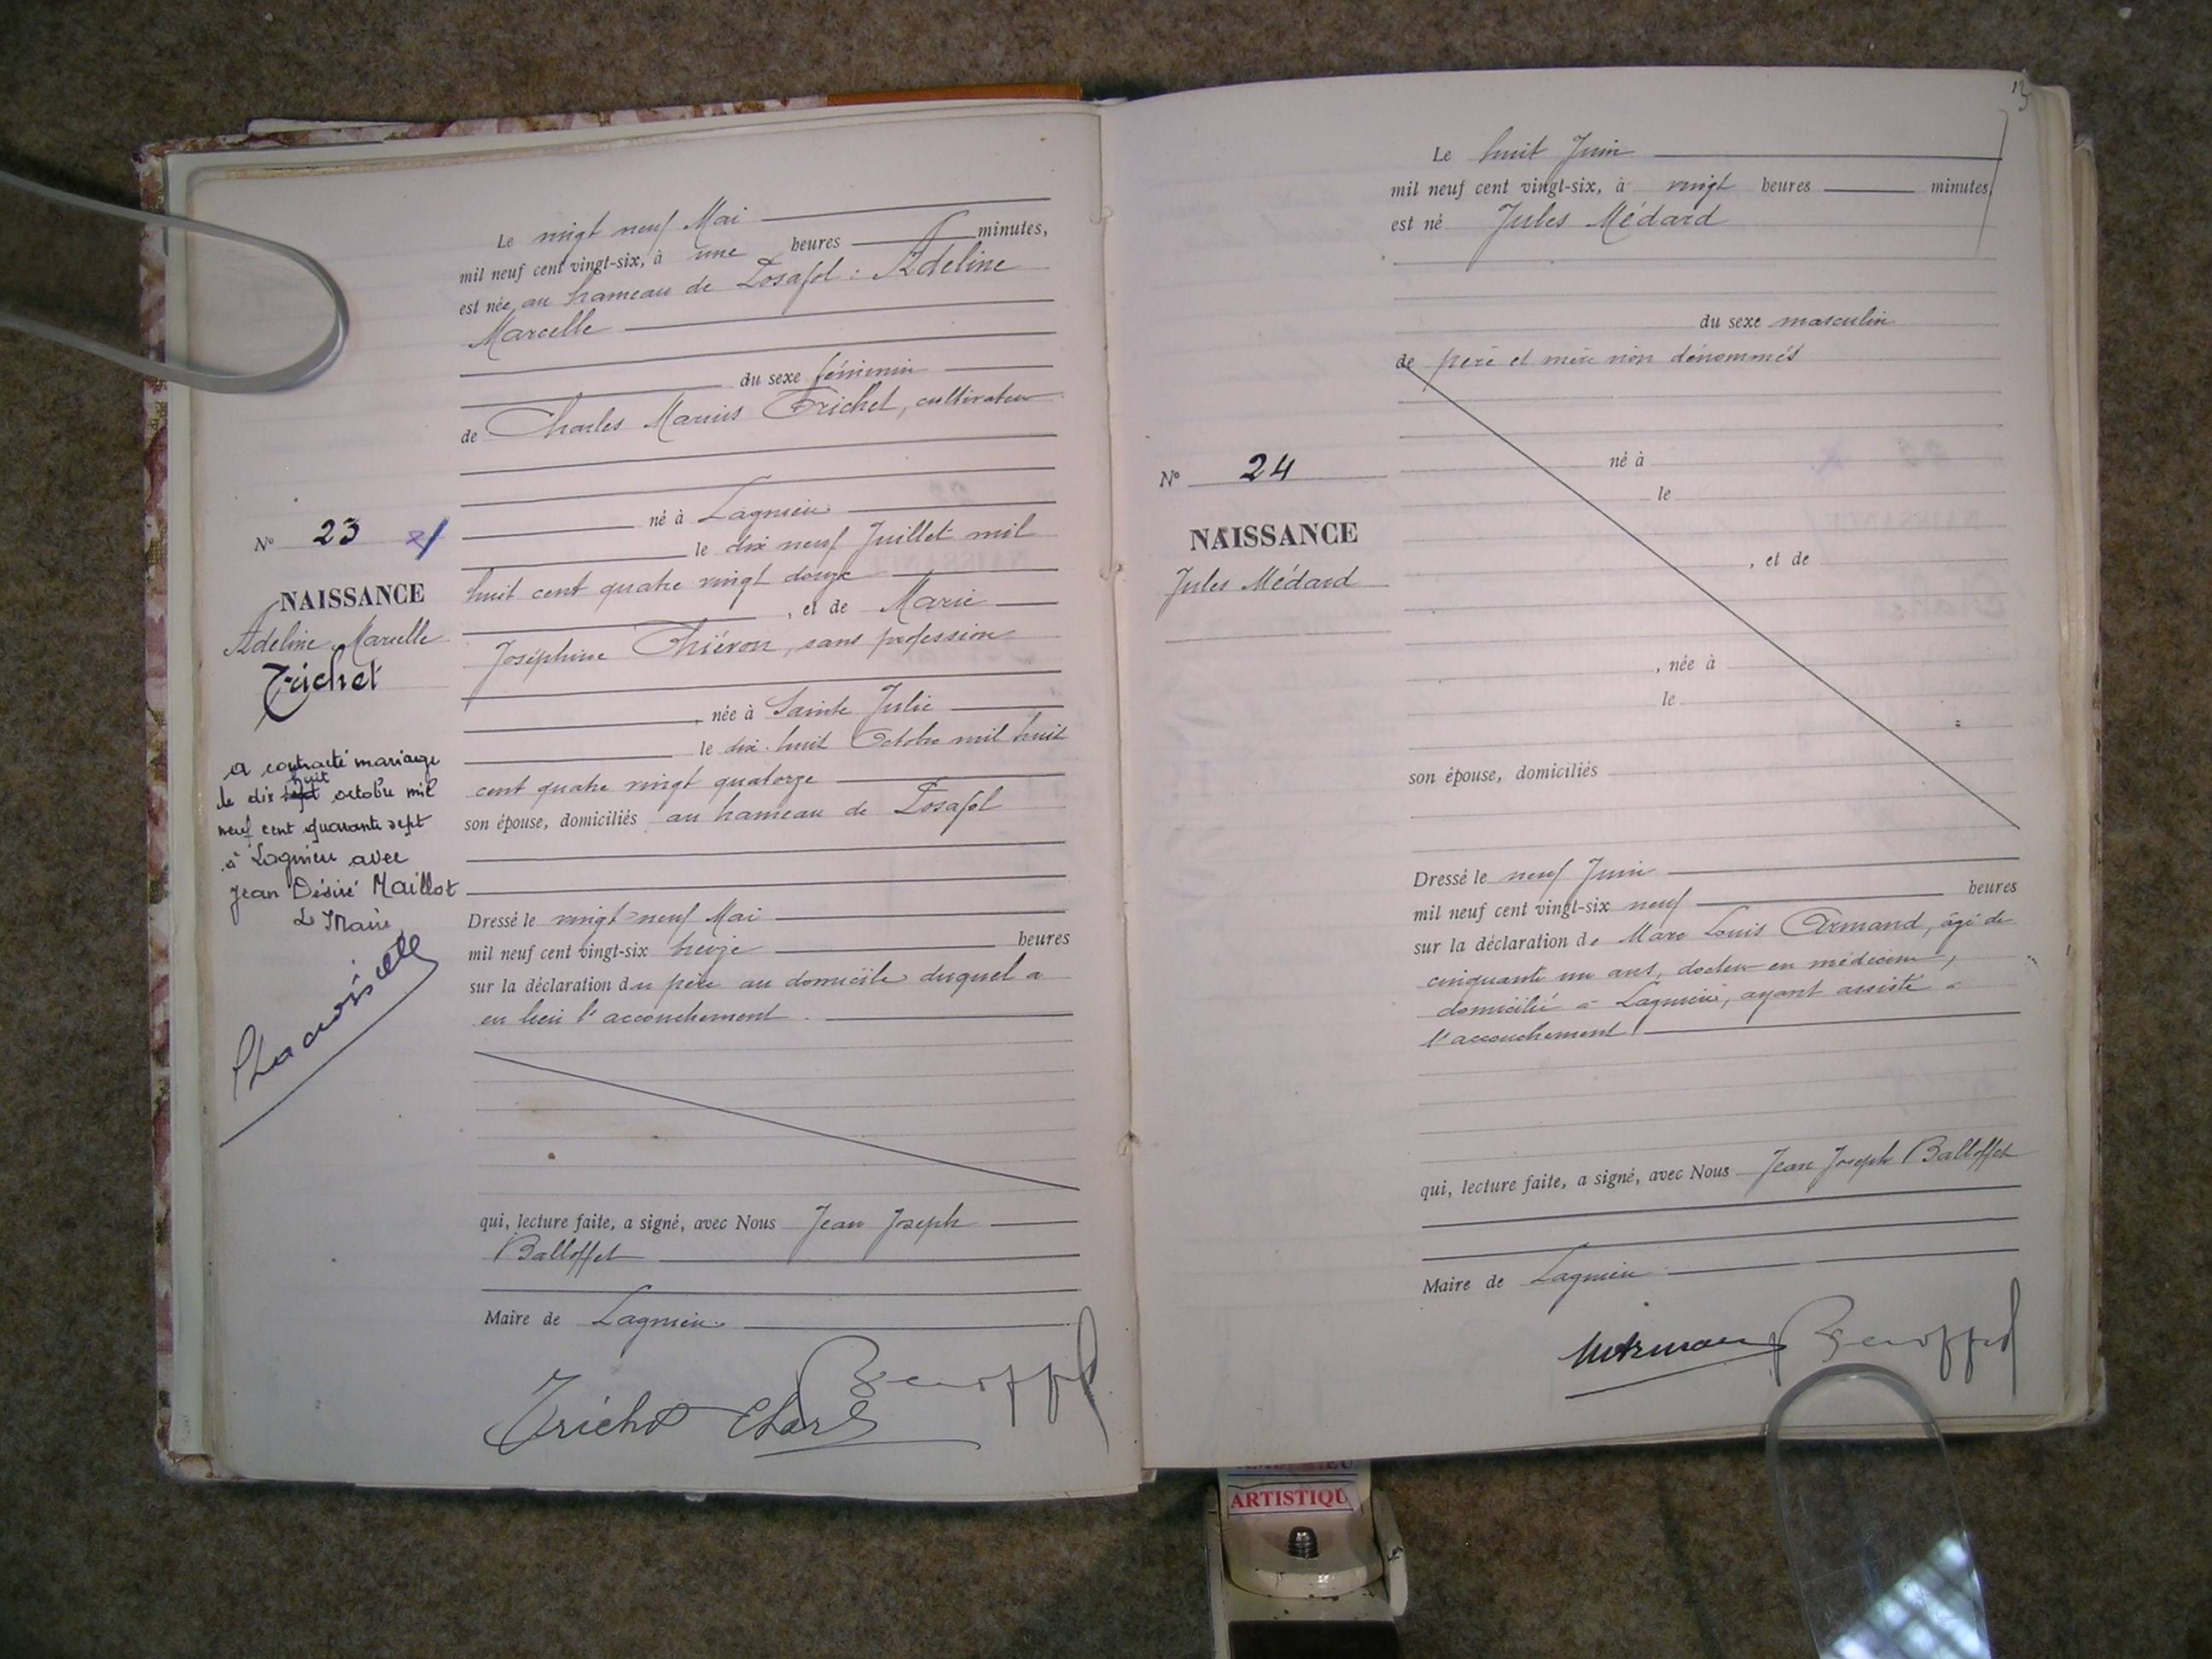 Le vingt neuf Mai
mil neuf cent vingt-six, à une heures minutes,
est née au hameau de Posafol : Adeline
Marcelle
du sexe féminin
de Charles Marius Trichet, cultivateur
né à Lagnieu
le dix neuf Juillet mil
huit cent quatre vingt douze
, et de Marie
Joséphine Thiévon, sans profession
, née à Sainte Julie
le dix huit Octobre mil huit
cent quatre vingt quatorze
son épouse, domiciliés au hameau de Posafol
Dressé le vingt neuf Mai
mil neuf cent vingt-six treize heures
sur la déclaration du père au domicile duquel a
eu lieu l'accouchement.
qui, lecture faite, a signé, avec Nous Jean Joseph
Balloffet
Maire de Lagnieu
Trichet Charles
Nº 23
NAISSANCE
Adeline Marcelle
Trichet
a contracté mariage
huit
le dix sept octobre mil
neuf cent quarante sept
à Lagnieu avec
Jean Désiré Maillot
Le Maire
13
Le huit Juin
mil neuf cent vingt-six, à vingt heures minutes,
est né Jules Médard
du sexe masculin
de père et mère non dénommés
né à
le
, et de
, née à
le
son épouse, domiciliés
Dressé le neuf Juin
mil neuf cent vingt-six neuf heures
sur la déclaration de Marc Louis Armand, âgé de
cinquante un ans, docteur en médecine,
domicilié à Lagnieu, ayant assisté à
l'accouchement
qui, lecture faite, a signé, avec Nous Jean Joseph Balloffet
Maire de Lagnieu
Nº 24
NAISSANCE
Jules Médard
ARTISTIQU